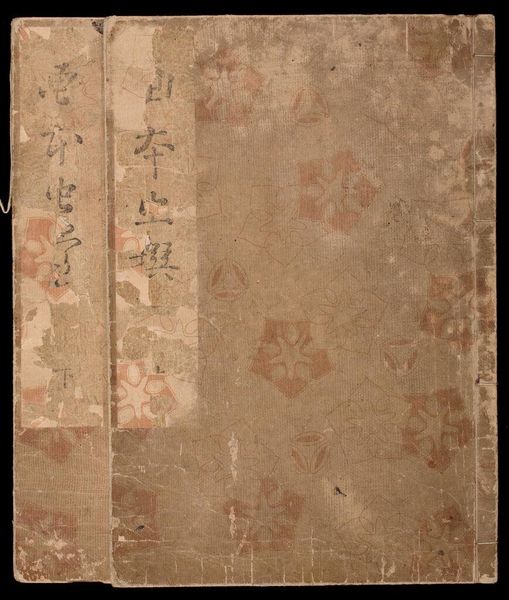 画本虫撰
上
画本虫
下